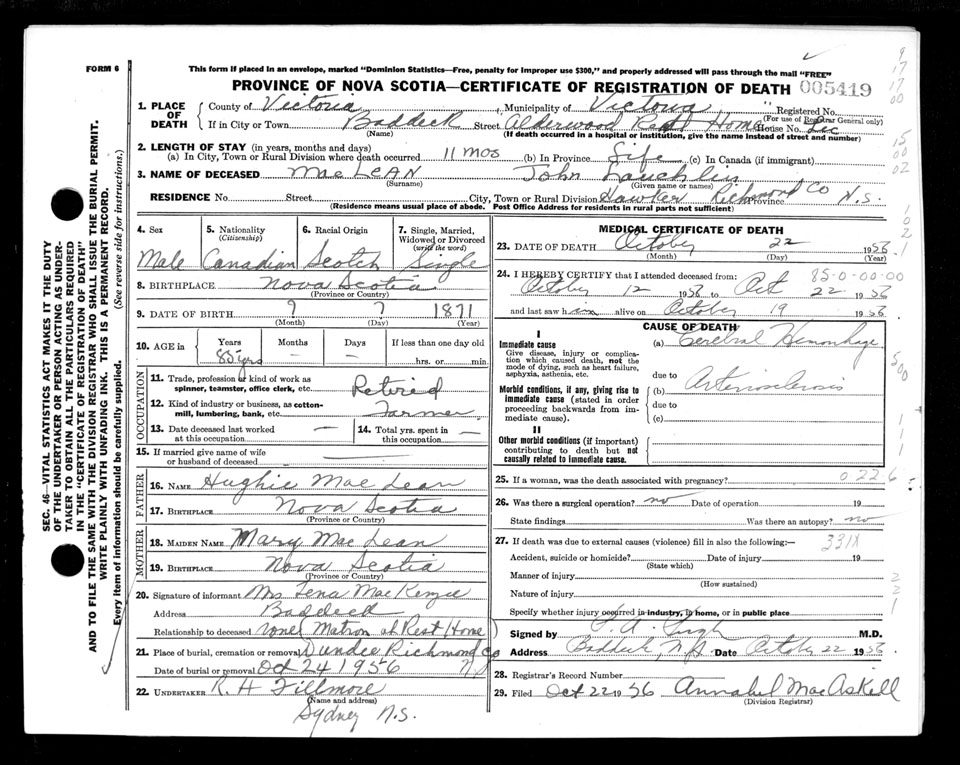 FORM 6
This form if placed in an envelope, marked "Dominion Statistics—Free, penalty for improper use $300," and properly addressed will pass through the mail "FREE"
PROVINCE OF NOVA SCOTIA—CERTIFICATE OF REGISTRATION OF DEATH 005419
1. PLACE OF DEATH
County of Victoria, Municipality of Victoria Registered No.
(For use of Registrar General only)
If in City or Town Baddeck Street Alderwood Rest Home House No.
(Name) (If death occurred in a hospital or institution, give the name instead of street and number)
2. LENGTH OF STAY (in years, months and days)
(a) In City, Town or Rural Division where death occurred 11 mos (b) In Province Life (c) In Canada (if immigrant)
3. NAME OF DECEASED MacLEAN John Lauchlin
(Surname) (Given name or names)
RESIDENCE No. Street City, Town or Rural Division Hawker Richmond Co Province N.S.
(Residence means usual place of abode. Post Office Address for residents in rural parts not sufficient)
4. Sex
Male
5. Nationality
(Citizenship)
Canadian
6. Racial Origin
Scotch
7. Single, Married, Widowed or Divorced
(write the word)
Single
8. BIRTHPLACE Nova Scotia
(Province or Country)
9. DATE OF BIRTH ? ? 1871
(Month) (Day) (Year)
10. AGE in Years Months Days If less than one day old
85 yrs — — hrs. or min.
OCCUPATION
11. Trade, profession or kind of work as spinner, teamster, office clerk, etc. Retired
12. Kind of industry or business, as cotton-mill, lumbering, bank, etc. Farmer
13. Date deceased last worked at this occupation —
14. Total yrs. spent in this occupation —
15. If married give name of wife or husband of deceased —
FATHER
16. NAME Hughie MacLean
17. BIRTHPLACE Nova Scotia
(Province or Country)
MOTHER
18. MAIDEN NAME Mary MacLean
19. BIRTHPLACE Nova Scotia
(Province or Country)
20. Signature of informant Mrs Lena MacKenzie
Address Baddeck
Relationship to deceased none (Matron at Rest Home)
21. Place of burial, cremation or removal Dundee Richmond Co
Date of burial or removal Oct 24 1956 N.S
22. UNDERTAKER K. H Fillmore
(Name and address)
Sydney N.S.
MEDICAL CERTIFICATE OF DEATH
23. DATE OF DEATH October 22 1956
(Month) (Day) (Year)
85-0-00-00
24. I HEREBY CERTIFY that I attended deceased from:
October 12 1956 to Oct 22 1956
and last saw him alive on October 19 1956
CAUSE OF DEATH
I
Immediate cause
Give disease, injury or complication which caused death, not the mode of dying, such as heart failure, asphyxia, asthenia, etc.
(a) Cerebral Hemorrhage
due to
Morbid conditions, if any, giving rise to immediate cause (stated in order proceeding backwards from immediate cause).
(b) Arteriosclerosis
due to
(c)
II
Other morbid conditions (if important) contributing to death but not causally related to immediate cause.
25. If a woman, was the death associated with pregnancy? 0226
26. Was there a surgical operation? no Date of operation 19
State findings Was there an autopsy? no
27. If death was due to external causes (violence) fill in also the following:—
331X
Accident, suicide or homicide? Date of injury 19
(State which)
Manner of injury
(How sustained)
Nature of injury
Specify whether injury occurred in industry, in home, or in public place
Signed by M.D.
Address Baddeck, N.S. Date October 22 1956
28. Registrar's Record Number
29. Filed Oct 22 1956 Annabel MacAskell
(Division Registrar)
SEC. 46—VITAL STATISTICS ACT MAKES IT THE DUTY
OF THE UNDERTAKER OR PERSON ACTING AS UNDER-
TAKER TO OBTAIN ALL THE PARTICULARS REQUIRED
IN THE "CERTIFICATE OF REGISTRATION OF DEATH"
AND TO FILE THE SAME WITH THE DIVISION REGISTRAR WHO SHALL ISSUE THE BURIAL PERMIT.
WRITE PLAINLY WITH UNFADING INK. THIS IS A PERMANENT RECORD.
Every item of information should be carefully supplied. (See reverse side for instructions.)